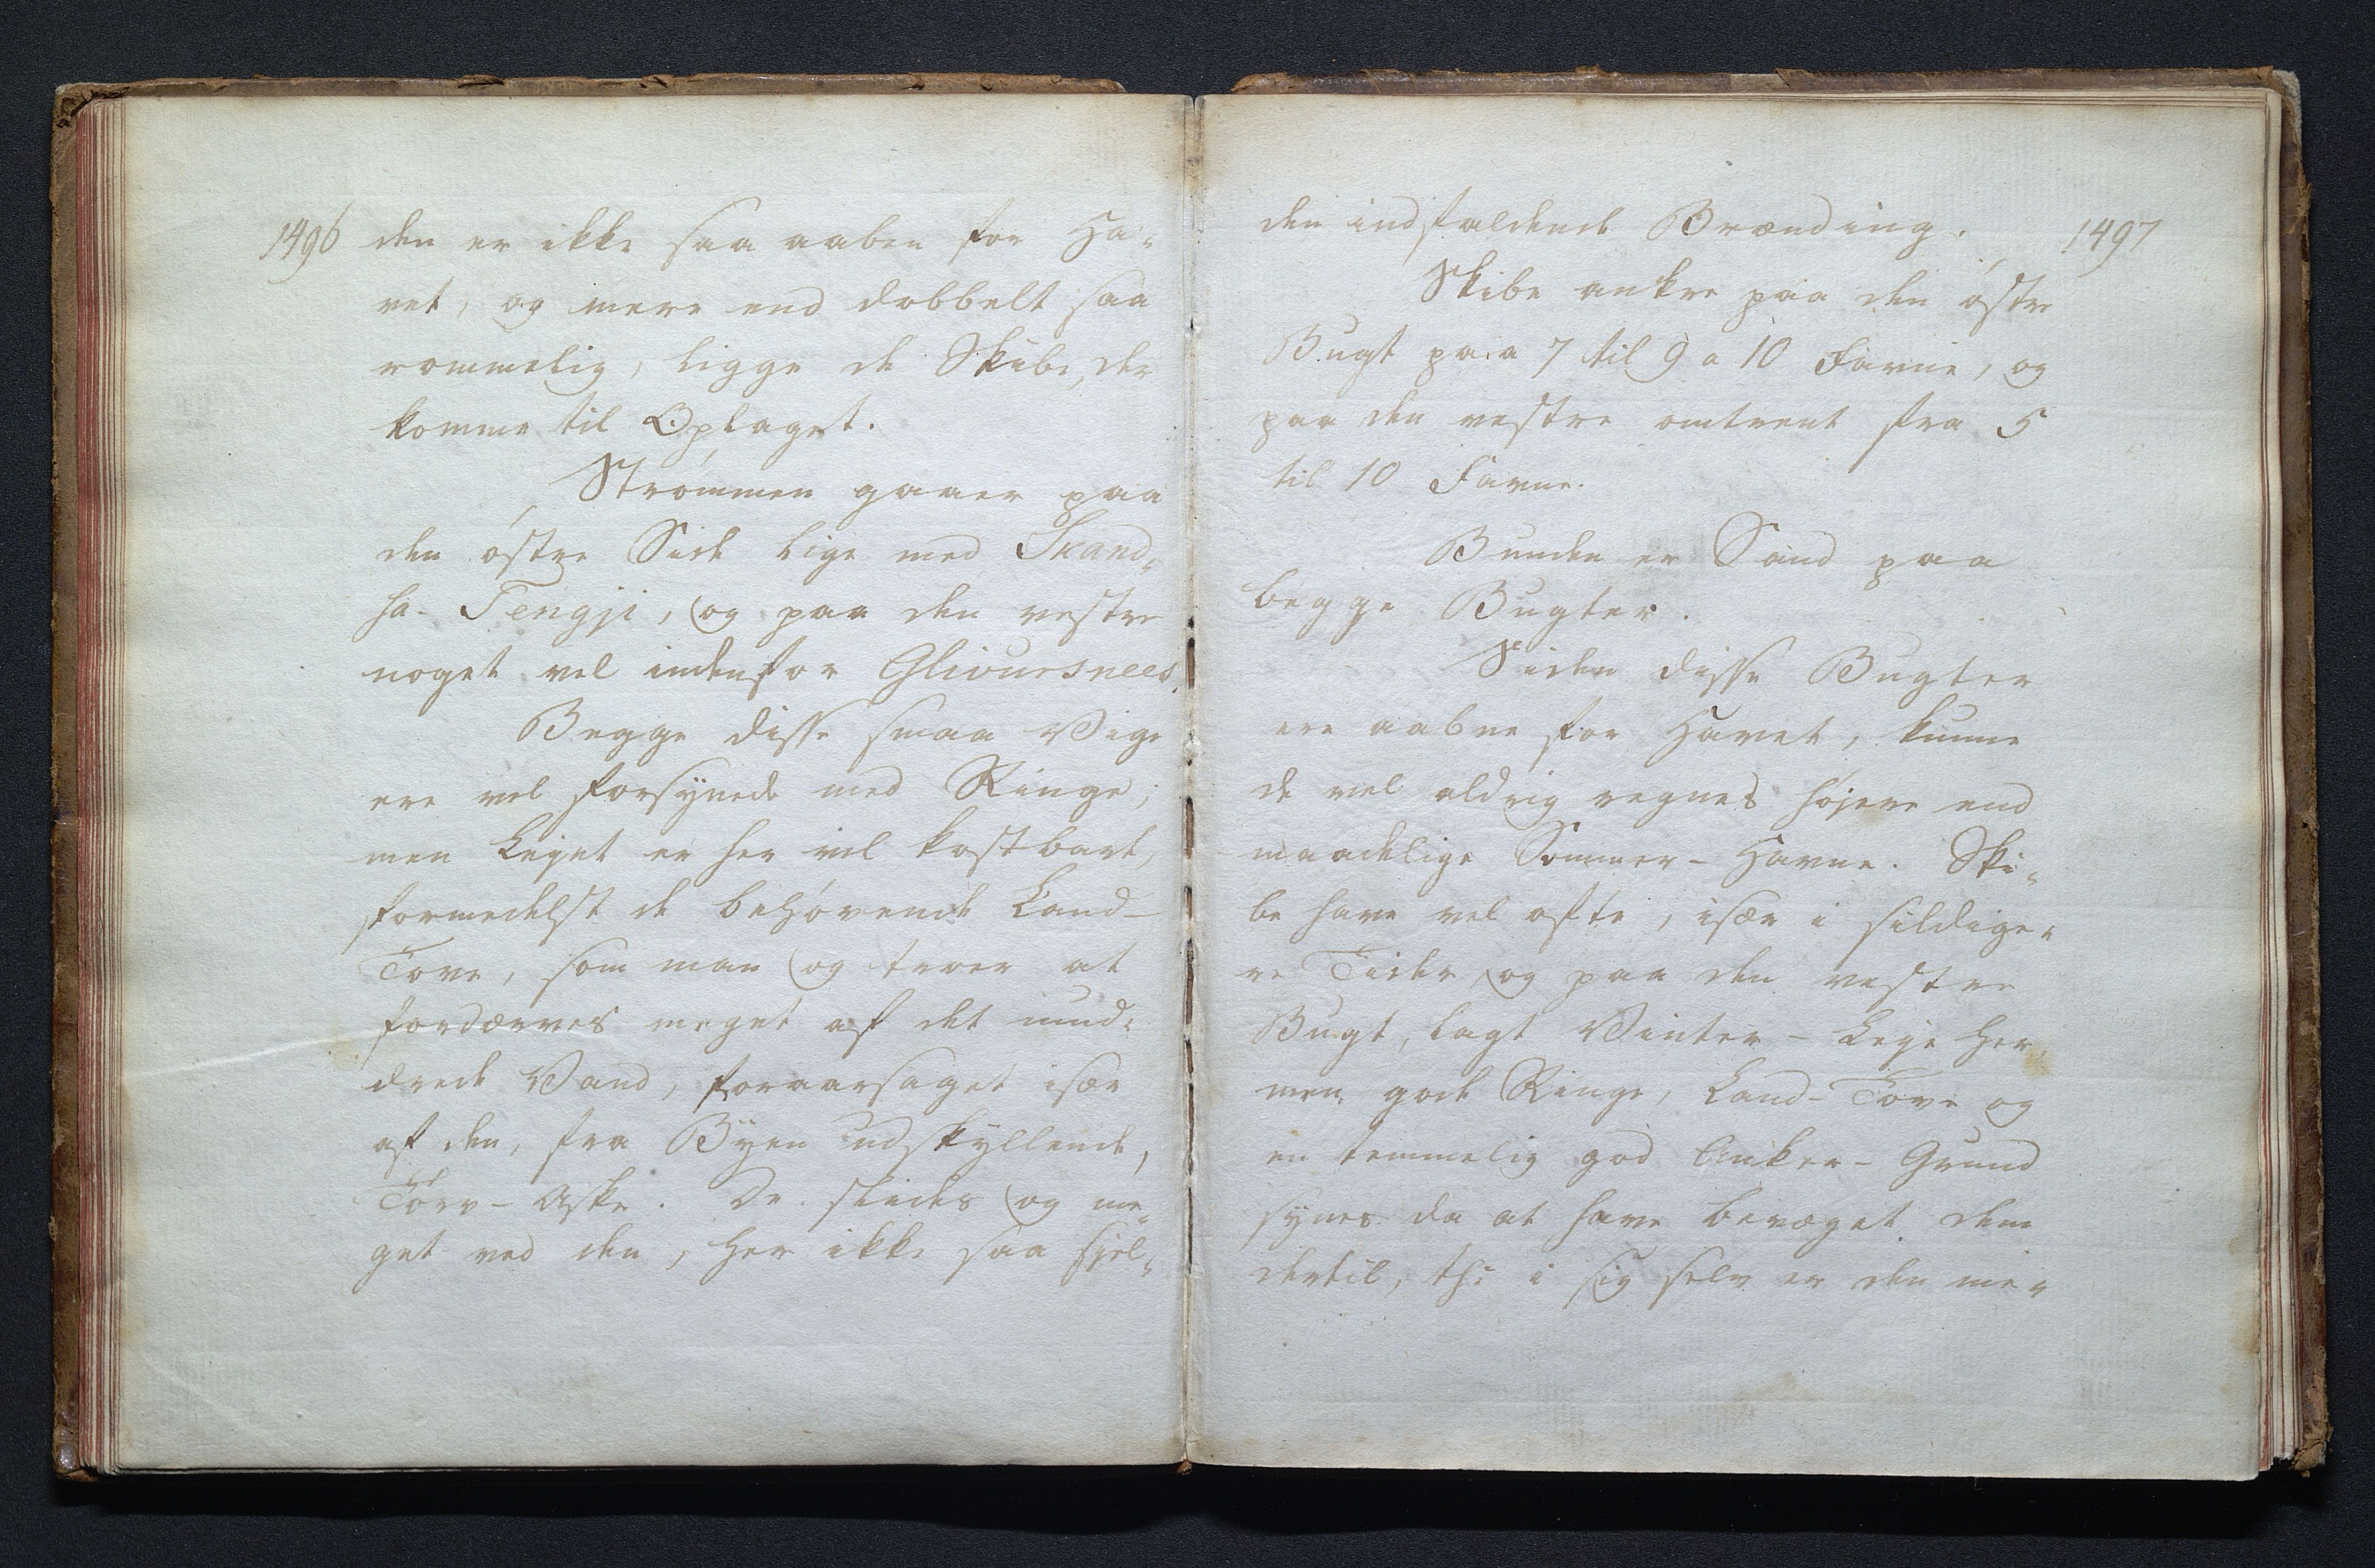 1496
den er ikke saa aaben for Ha-
vet, og mere end dobbelt saa
rommelig, ligge de Skibe, der
komme til Oplaget.
Strømmen gaaer paa
den østre Side lige med Skand-
ha-Tengji, og paa den vestre
noget vel indenfor Glivursnees.
Begge disse smaa Vige
ere vel forsynede med Ringe;
men Lejet er her vel kostbart,
formedelst de behøvende Land-
Tove, som man og troer at
fordærves meget af det mud-
drede Vand, foraarsaget især
af den, fra Byen udskyllende,
Tørv-Aske. De slides og me-
get ved den, her ikke saa sjel-
1497
den indfaldende Brænding.
Skibe ankre paa den østre
Bugt paa 7 til 9 a 10 Favne, og
paa den vestre omtrent fra 5
til 10 Favne.
Bunden er Sand paa
begge Bugter.
Siden disse Bugter
ere aabne for Havet, kunne
de vel aldrig regnes højere end
maadelige Sommer-Havne. Ski-
be have vel ofte, især i sildige-
re Tider og paa den vestre
Bugt, lagt Vinter-Leje her,
men gode Ringe, Land-Tove og
en temmelig god Anker-Grund
synes da at have bevæget dem
dertil, thi i sig selv er den me-